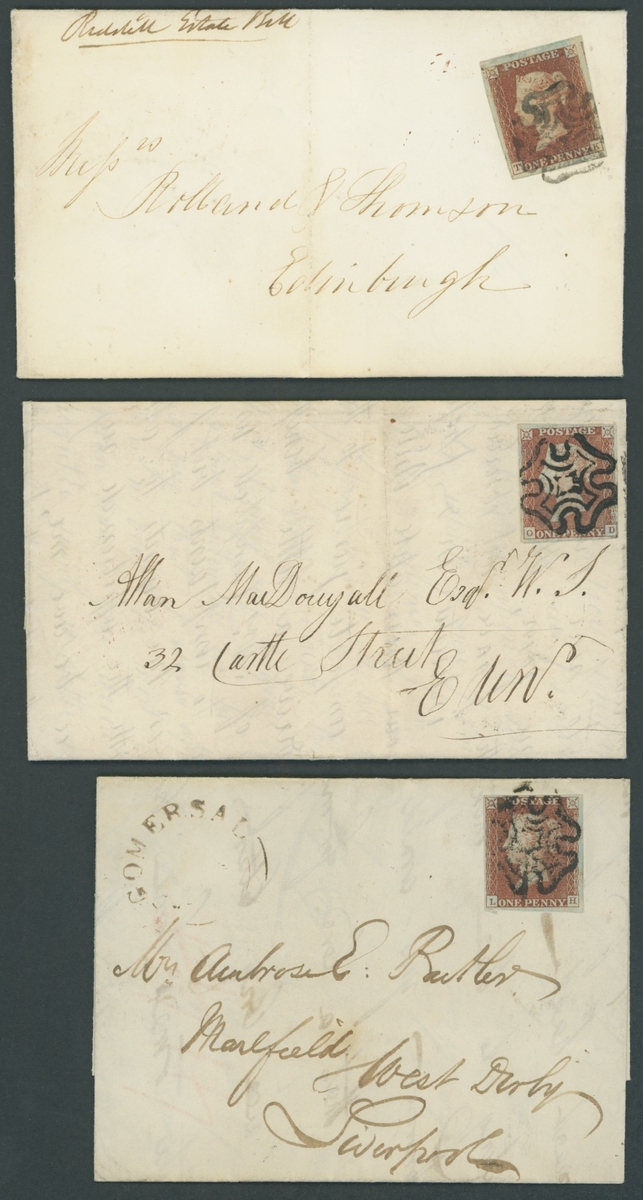 Redhill Estate Bill
POSTAGE
T ONE PENNY K
Messrs
Rolland & Thomson
Edinburgh
POSTAGE
O ONE PENNY D
Allan MacDougall Esqr. W. S.
32 Castle Street
Edinr.
GOMERSAL
POSTAGE
L ONE PENNY H
Mrs Ambrose E. Butler
Marlfield
West Derby
Liverpool